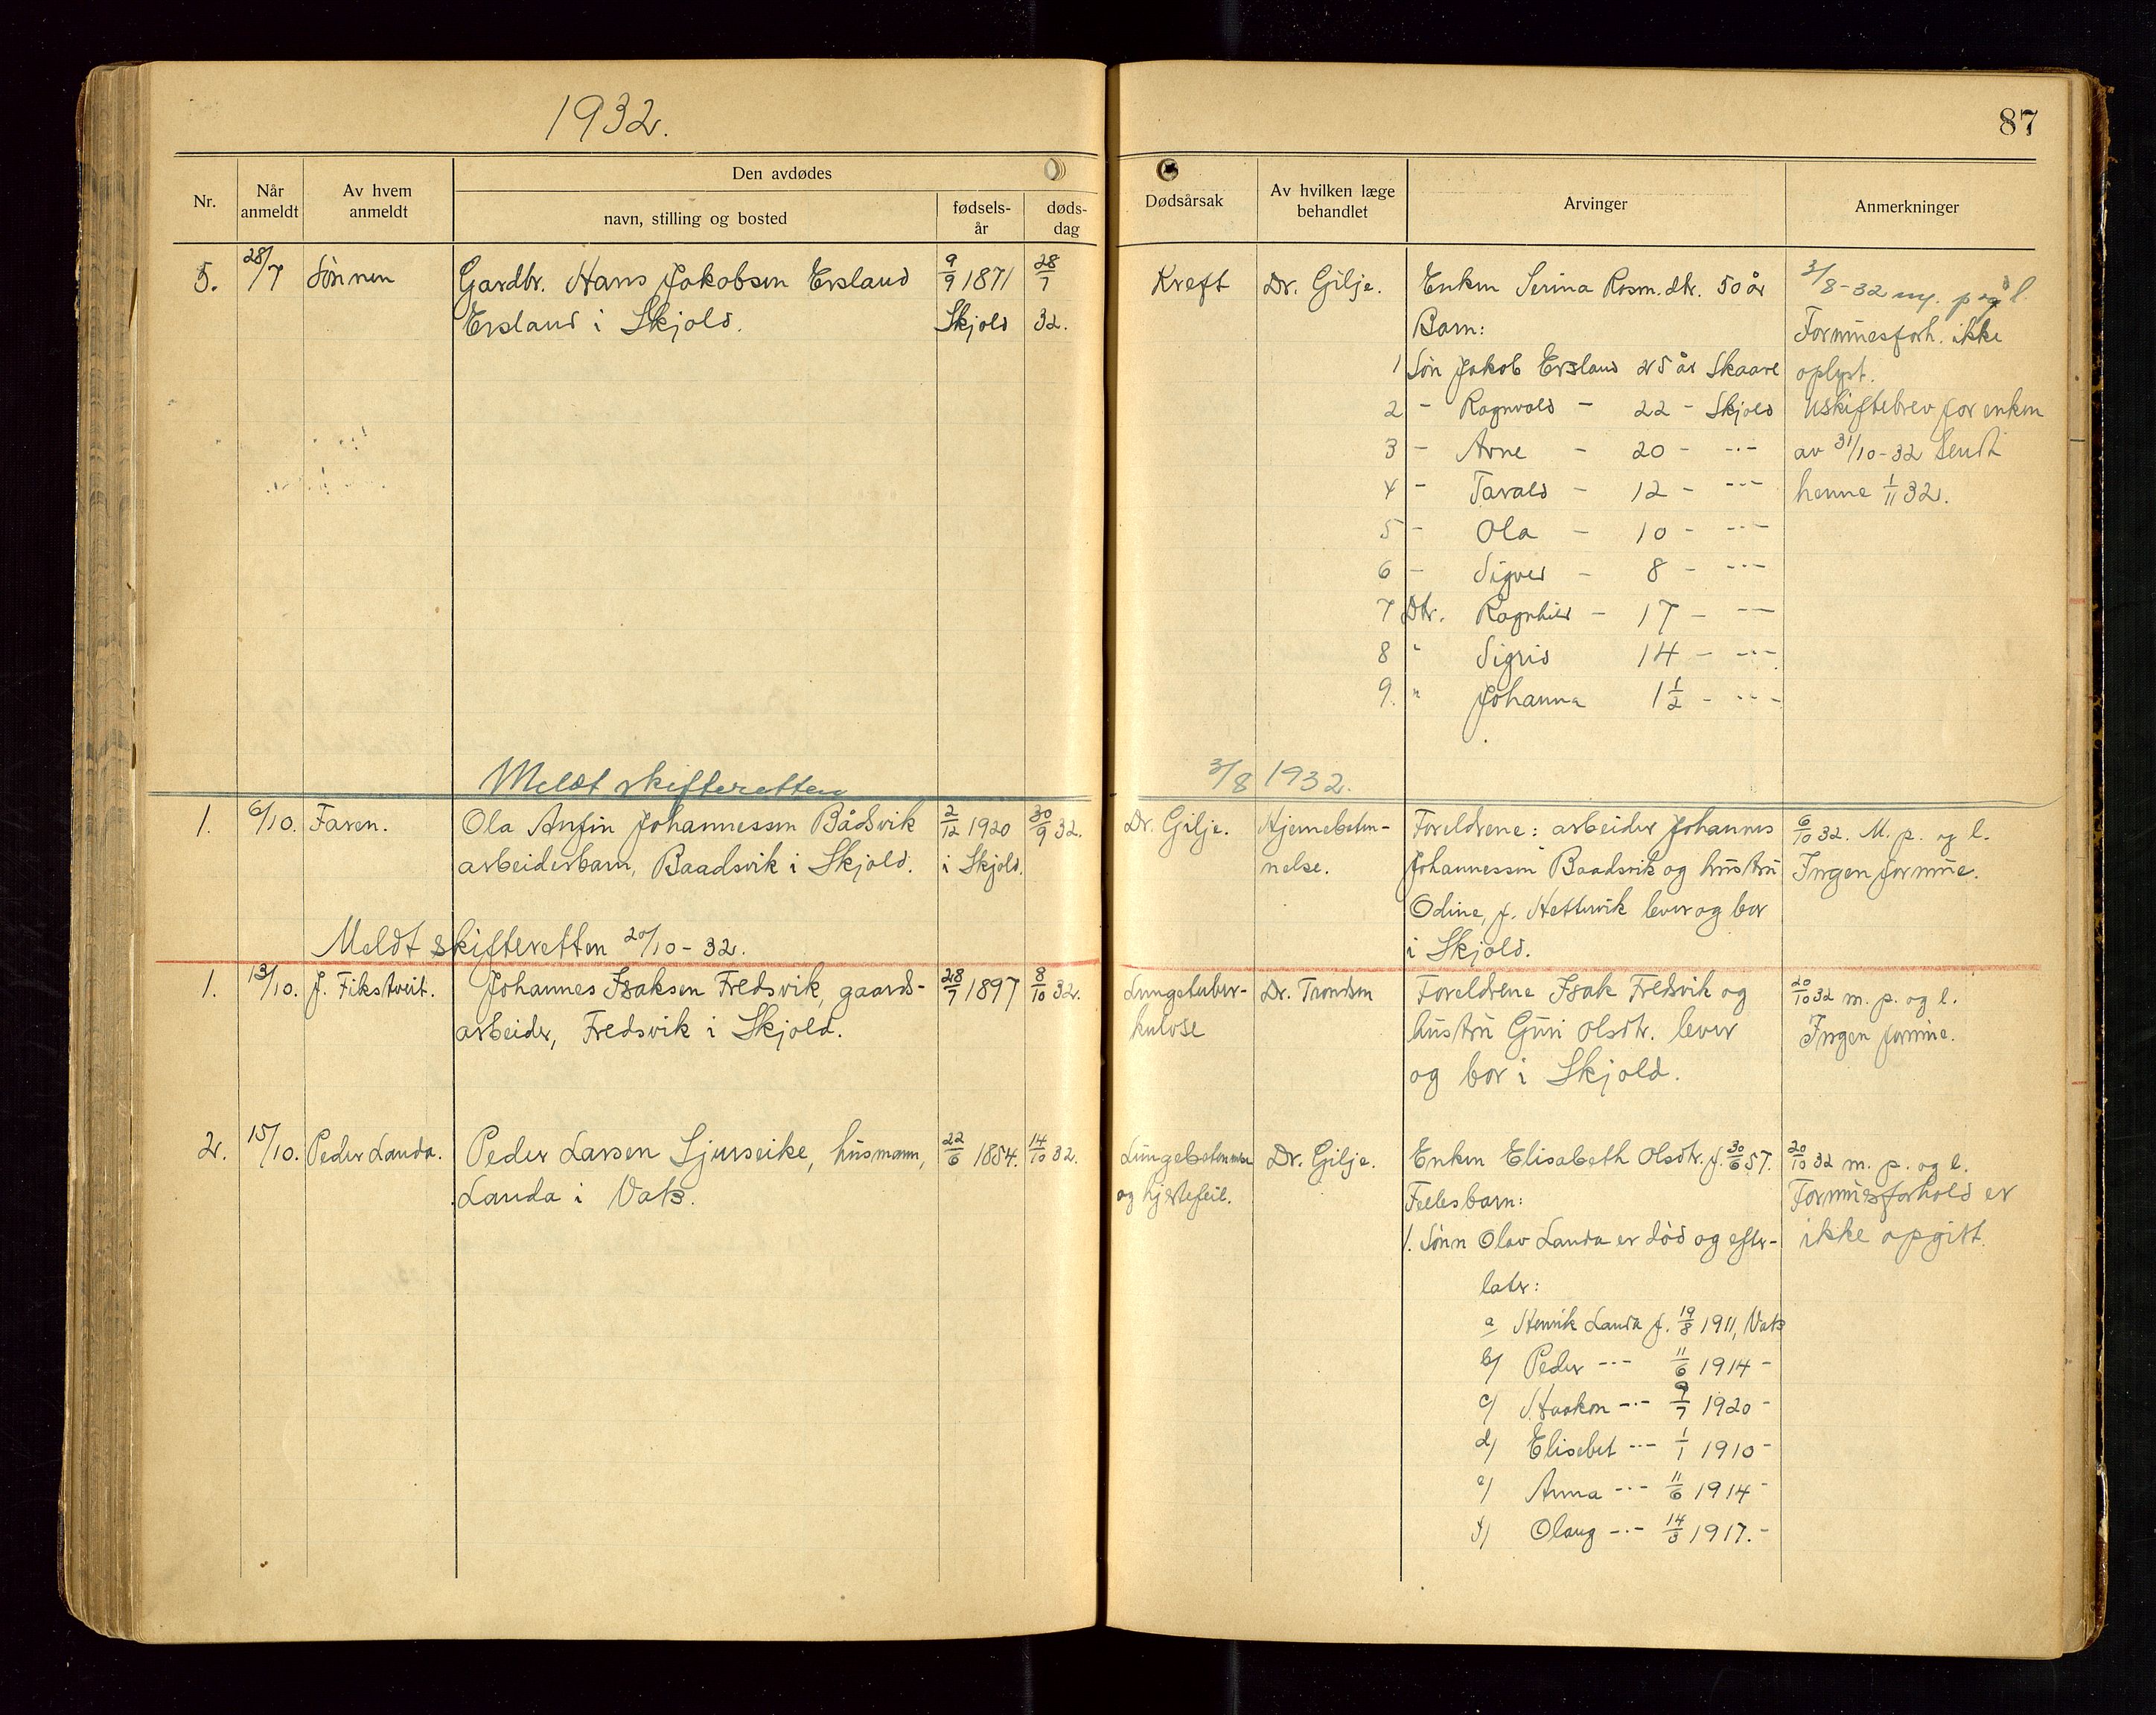 1932.
87
Nr.
Når anmeldt
Av hvem anmeldt
Den avdødes
navn, stilling og bosted
fødsels-år
døds-dag
Dødsårsak
Av hvilken læge behandlet
Arvinger
Anmerkninger
5. 28/7 Sønnen Gardbr. Hans Jakobsen Ersland 9/9 1871 28/7
Ersland i Skjold. Skjold 32.
Kreft Dr. Gilje. Enken Serina Rasm.dtr. 50 år
Barn:
1 Søn Jakob Ersland 25 år Skaare
2 - Ragnvald - 22 - Skjold
3 - Arne - 20 - -"-
4 - Tarald - 12 - -"-
5 - Ola - 10 - -"-
6 - Sigved - 8 - -"-
7 Dtr. Ragnhild - 17 - -"-
8 " Sigrid 14 - -"-
9. " Johanna 1½ - -"-
3/8-32 m. p og l.
Formuesforh. ikke
oplyst.
Uskiftebrev for enken
av 31/10-32 sendt
henne 1/11 32.
Meldt skifteretten 3/8 1932.
1. 6/10. Faren. Ola Anfin Johannessen Bådsvik 2/12 1920 30/9 32.
arbeiderbarn, Baadsvik i Skjold. i Skjold.
Dr. Gilje. Hjernebeten-
nelse.
Foreldrene: arbeider Johannes
Johannessen Baadsvik og hustru
Odine, f. Hettervik lever og bor
i Skjold.
6/10 32. M. p. og l.
Ingen formue.
Meldt skifteretten 20/10-32.
1. 13/10. J. Fikstveit. Johannes Isaksen Fredsvik, gaards- 28/7 1897 8/10 32.
arbeider, Fredsvik i Skjold.
Lungetuber-
kulose
Dr. Trondsen
Foreldrene Isak Fredsvik og
hustru Guri Olsdtr. lever
og bor i Skjold.
20/10 32 m. p. og l.
Ingen formue.
2. 15/10. Peder Landa. Peder Larsen Sjurseike, husmann, 22/6 1854. 14/10 32.
Landa i Vats.
Lungebetennelse
og hjertefeil.
Dr. Gilje.
Enken Elisabeth Olsdtr. f. 30/6 57.
Fellesbarn:
1. Sønn Olav Landa er død og efter-
later:
a Henrik Landa f. 19/8 1911, Vats
b) Peder -"- 11/6 1914 -
c) Haakon -"- 9/7 1920 -
d) Elisebet -"- 1/1 1910 -
e) Anna -"- 11/6 1914 -
f) Olaug -"- 14/3 1917. -
20/10 32 m. p. og l.
Formuesforhold er
ikke opgitt.